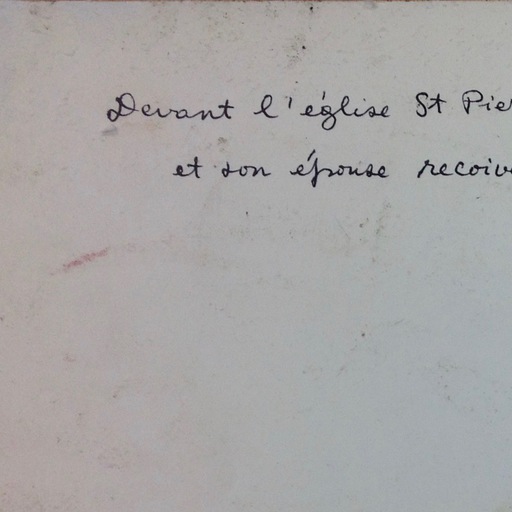 Devant l'église St Pie
et son épouse recoiv